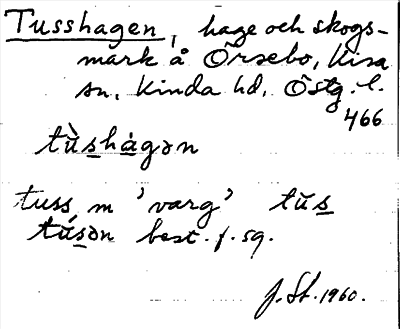 Tusshagen, hage och skogs-
mark å Örsebo, Kisa
sn, Kinda hd, Östg. l.
466
tùshàgən
tuss m 'varg' tŭs
túsən best. f. sg.
J. St. 1960.